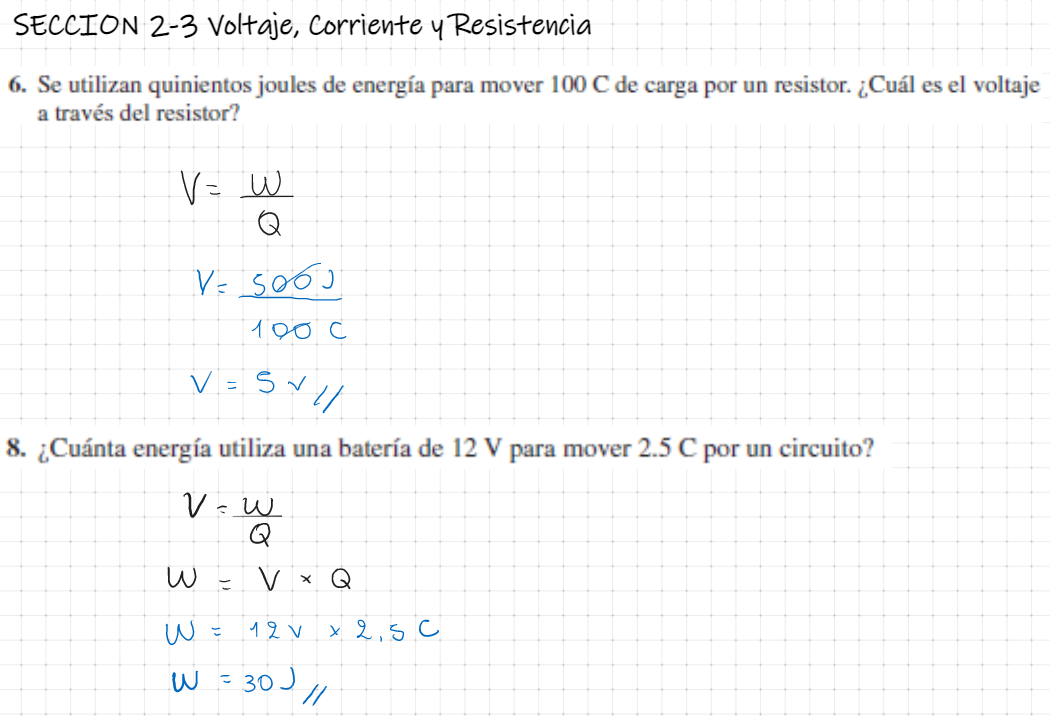 SECCION 2-3 Voltaje, Corriente y Resistencia
6. Se utilizan quinientos joules de energía para mover 100 C de carga por un resistor. ¿Cuál es el voltaje
a través del resistor?
V = W
Q
V = 500 J
100 C
V = 5 V //
8. ¿Cuánta energía utiliza una batería de 12 V para mover 2.5 C por un circuito?
V = W
Q
W = V × Q
W = 12 V × 2.5 C
W = 30 J //